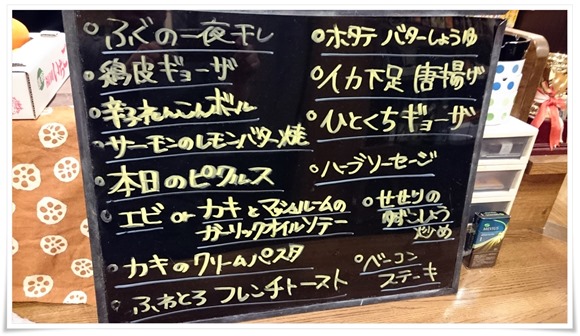 ふぐの一夜干し
鶏皮ギョーザ
辛子れんこんボール
サーモンのレモンバター焼
本日のピクルス
エビ or カキとマッシュルームの
ガーリックオイルソテー
カキのクリームパスタ
ふわとろ フレンチトースト
ホタテ バターしょうゆ
イカ下足 唐揚げ
ひとくちギョーザ
ハーブソーセージ
せせりの
ゆずこしょう
炒め
ベーコン
ステーキ